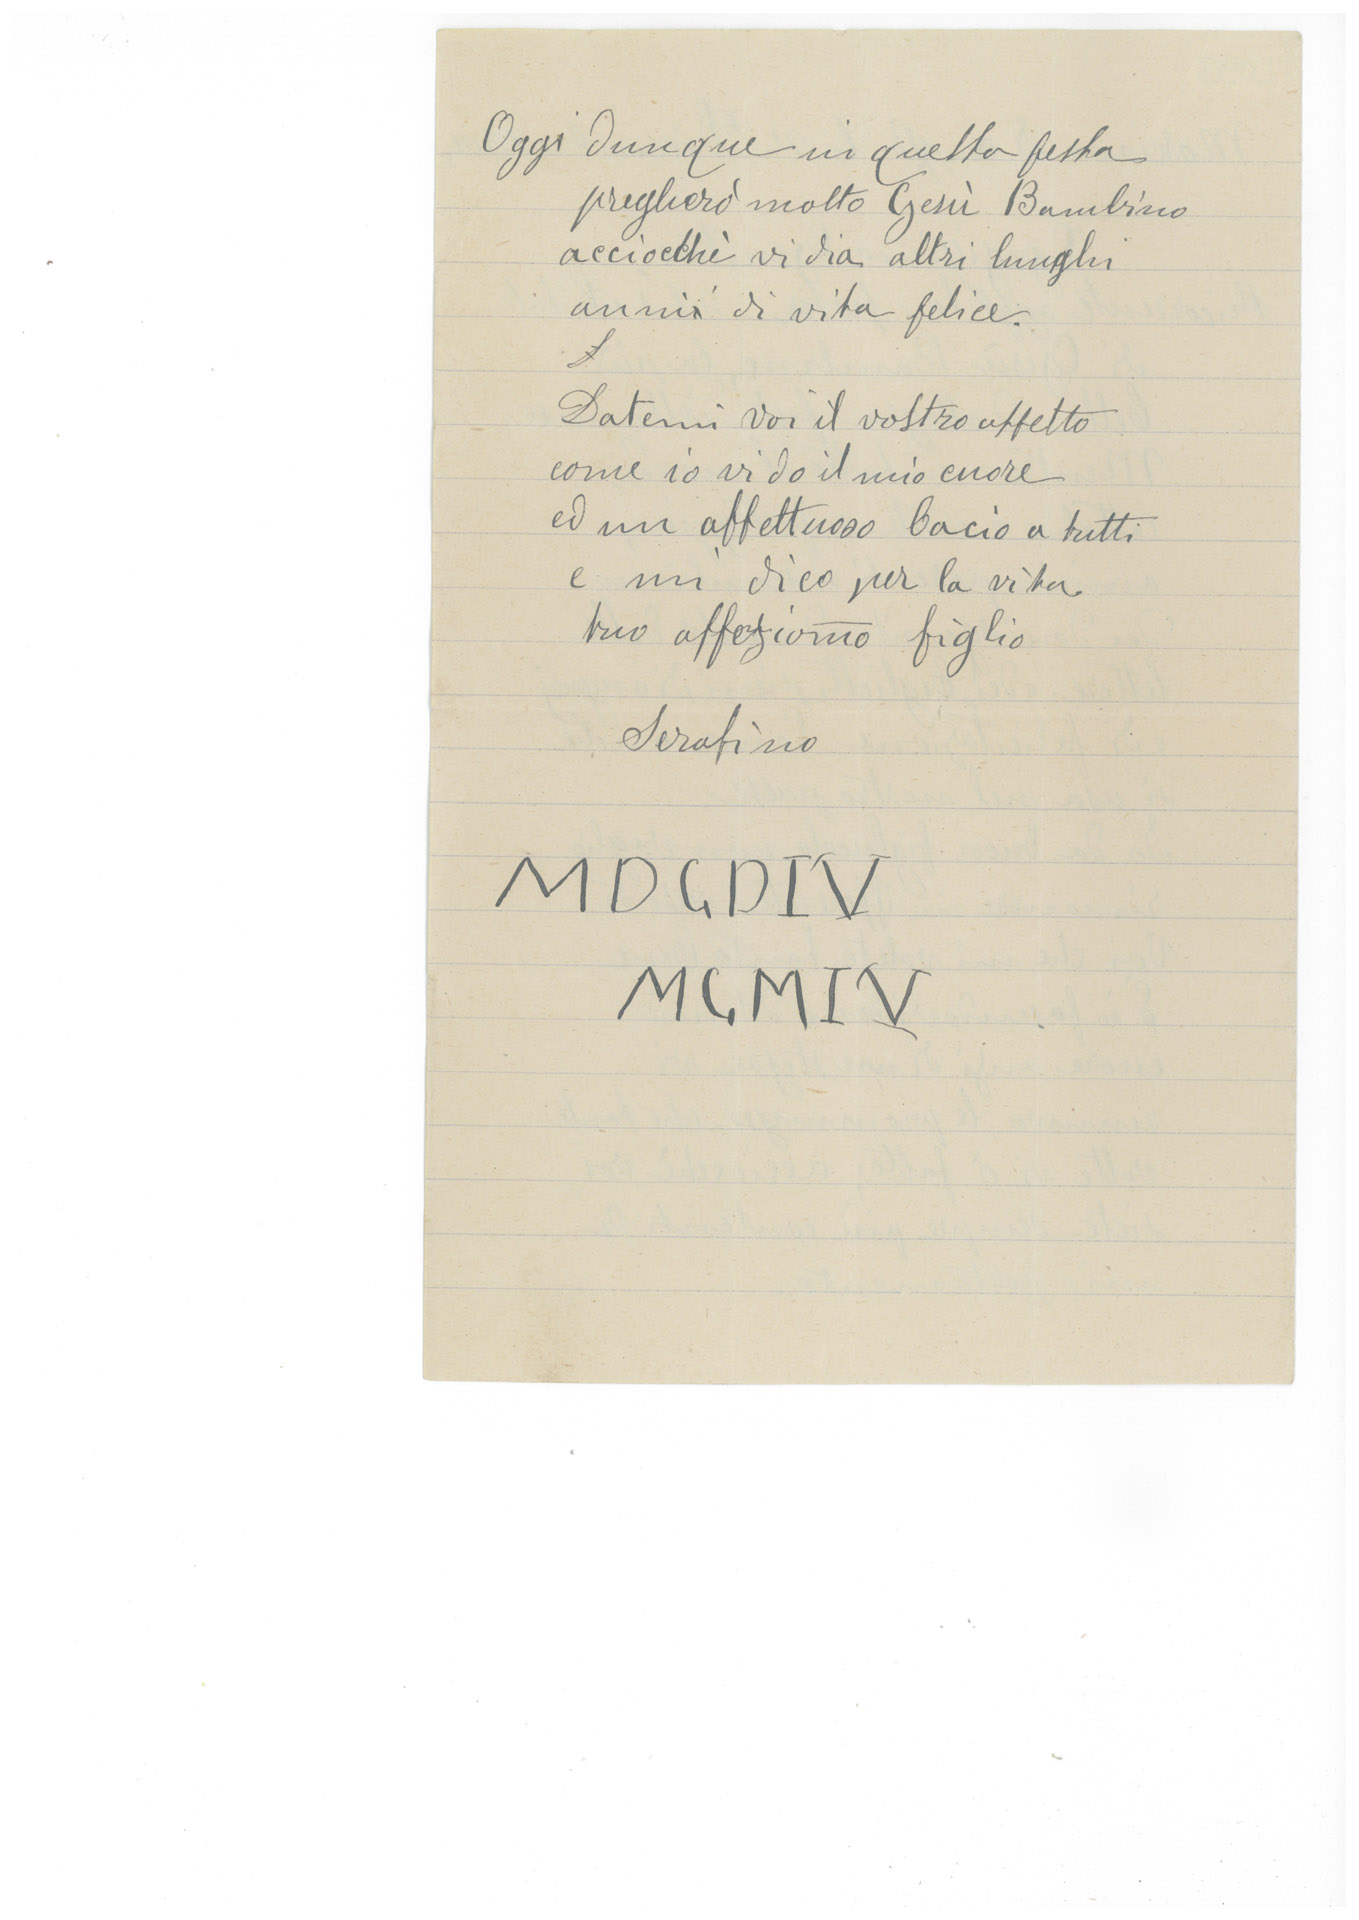 Oggi dunque in questa festa
pregherò molto Gesù Bambino
acciocchè vi dia altri lunghi
anni di vita felice.
Datemi voi il vostro affetto
come io vi do il mio cuore
ed un affettuoso bacio a tutti
e mi dico per la vita
tuo affeziomo figlio
Serafino
MDCDIV
MCMIV